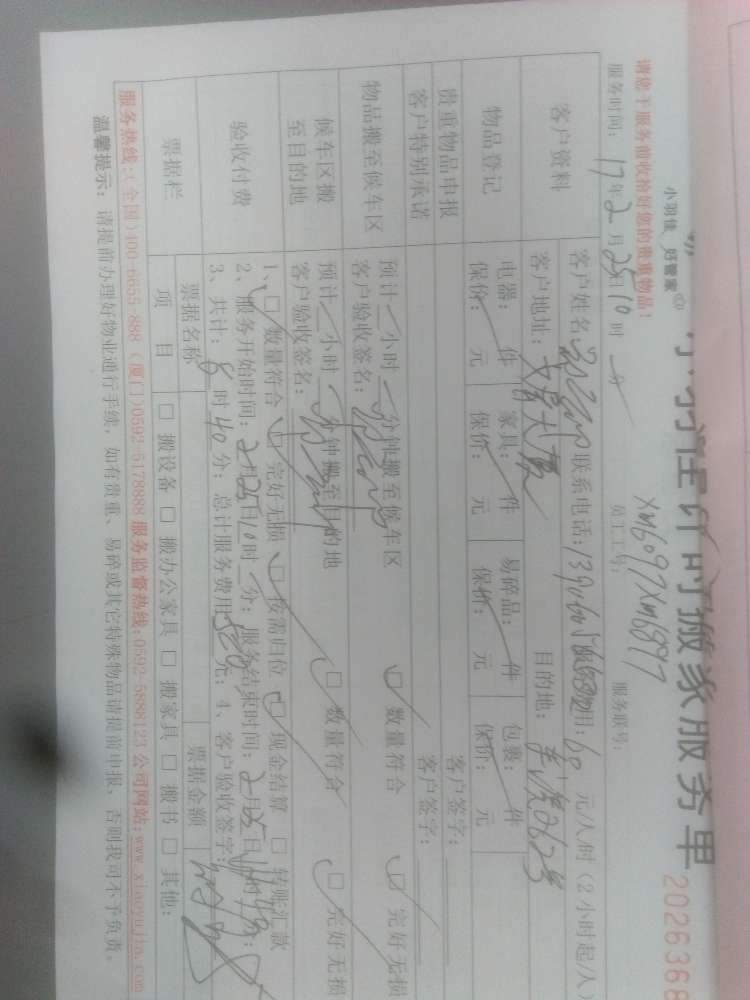 小羽佳 好管家
小羽佳计时搬家服务单
2026368
请您于服务前收拾好您的贵重物品!
员工工号: XM6097 XM6897
服务联号:
服务时间: 17年2月25日10时 分
客户资料
客户姓名 联系电话: 费用: 60 元/人时(2小时起/人)
客户地址: 大厦 目的地:
物品登记
电器: 件 家具: 件 易碎品: 件 包裹: 件
保价: 元 保价: 元 保价: 元 保价: 元
贵重物品申报 客户签字:
客户特别承诺 客户签字:
物品搬至候车区
预计 小时 分钟搬至候车区 □ 数量符合 □ 完好无损
客户验收签名:
候车区搬至目的地
预计 小时 分钟搬至目的地 □ 数量符合 □ 完好无损
客户验收签名:
验收付费
1、□ 数量符合 □ 完好无损 □ 按需归位 □ 现金结算 □ 转账汇款
2、服务开始时间: 2月25日10时 分; 服务结束时间: 2月25日
3、共计: 8时40分; 总计服务费用: 520元; 4、客户验收签字:
票据栏
票据名称 票据金额
项 目 □ 搬设备 □ 搬办公家具 □ 搬家具 □ 搬书 □ 其他:
服务热线:(全国)400-6655 888 (厦门)0592-5178888 服务监督热线:0592-5888123 公司网站:www.xiaoyujia.com
温馨提示: 请提前办理好物业通行手续, 如有贵重、易碎或其它特殊物品请提前申报, 否则我司不予负责。